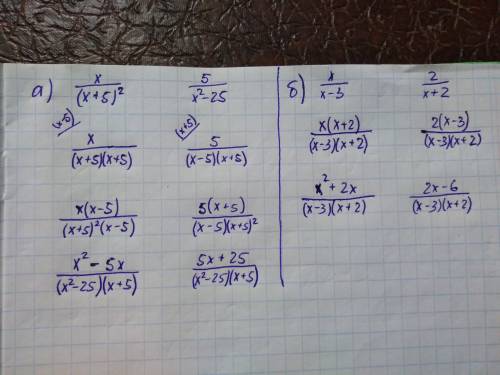 а) x/(x+5)² 5/(x²-25)
(x-5) x/((x+5)(x+5)) (x+5) 5/((x-5)(x+5))
x(x-5)/((x+5)²(x-5)) 5(x+5)/((x-5)(x+5)²)
x²-5x/((x²-25)(x+5)) 5x+25/((x²-25)(x+5))
б) x/(x-3) 2/(x+2)
x(x+2)/((x-3)(x+2)) 2(x-3)/((x-3)(x+2))
x²+2x/((x-3)(x+2)) 2x-6/((x-3)(x+2))